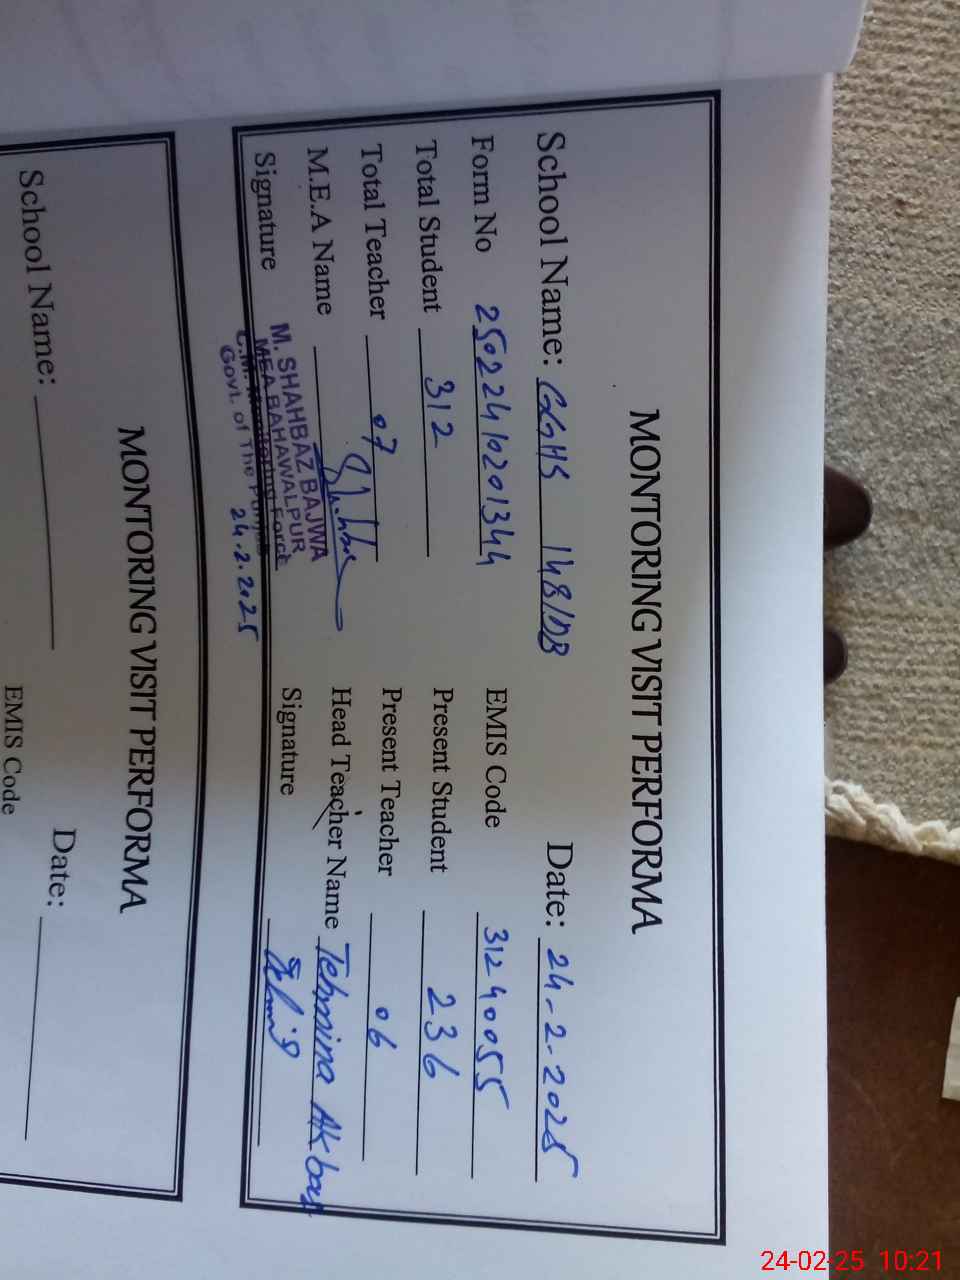 MONTORING VISIT PERFORMA
School Name: GGHS 148/DB Date: 24-2-2025
Form No 25022410201344 EMIS Code 31240055
Total Student 312 Present Student 236
Total Teacher 07 Present Teacher 06
M.E.A Name Head Teacher Name Tehmina Akbar
Signature Signature
M. SHAHBAZ BAJWA
MEA BAHAWALPUR
C.M. Monitoring Force
Govt. of The Punjab
24.2.2025
MONTORING VISIT PERFORMA
School Name: Date:
EMIS Code
24-02-25 10:21